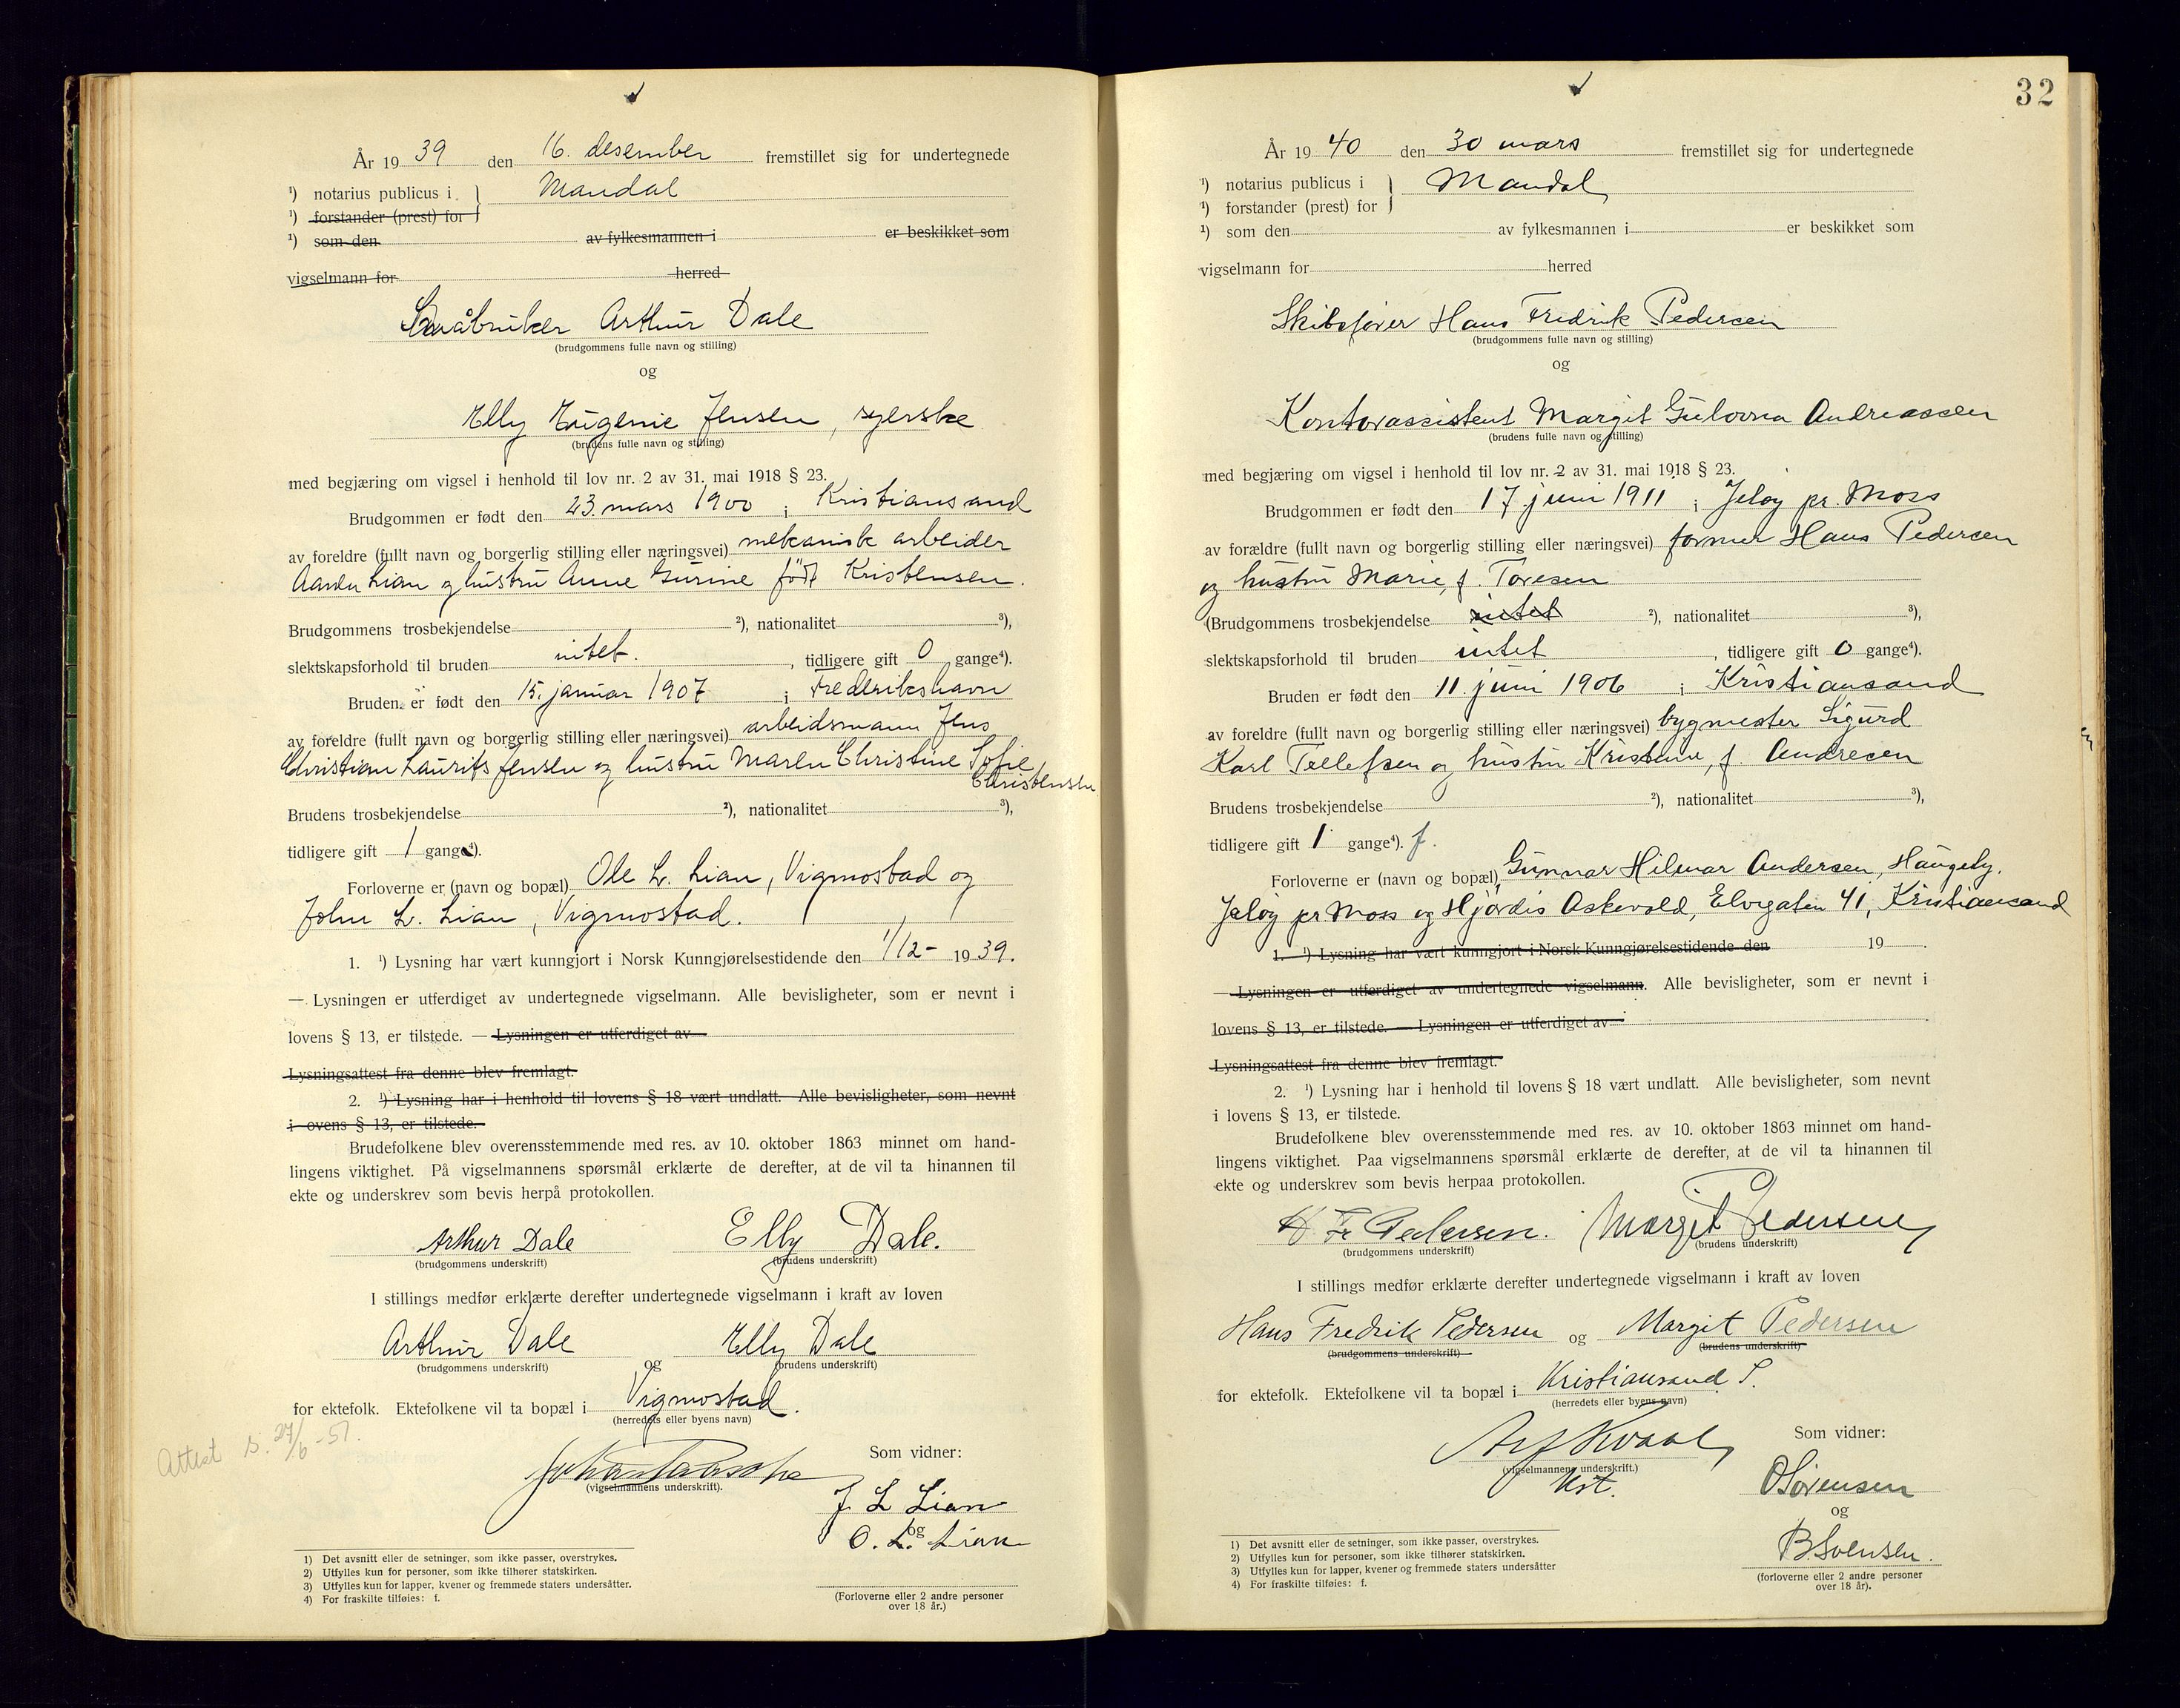 År 19 39 den 16. desember fremstillet sig for undertegnede
¹) notarius publicus i } Mandal
¹) forstander (prest) for
¹) som den av fylkesmannen i er beskikket som
vigselmann for herred
Småbruker Arthur Dale
(brudgommens fulle navn og stilling)
og
Elly Eugenie Jensen, syerske
(brudens fulle navn og stilling)
med begjæring om vigsel i henhold til lov nr. 2 av 31. mai 1918 § 23.
Brudgommen er født den 23. mars 1900 i Kristiansand
av foreldre (fullt navn og borgerlig stilling eller næringsvei) mekanisk arbeider
Lian og hustru Anne Gurine født Kristensen.
Brudgommens trosbekjendelse ²), nationalitet ³),
slektskapsforhold til bruden intet. , tidligere gift 0 gange⁴).
Bruden er født den 15. januar 1907 i Frederikshavn
av foreldre (fullt navn og borgerlig stilling eller næringsvei) arbeidsmann Jens
Christian Laurits Jensen og hustru Maren Christine Sofie
Christensen
Brudens trosbekjendelse ²), nationalitet ³),
tidligere gift 1 gange⁴).
Forloverne er (navn og bopæl) Ole L. Lian, Vigmostad og
John L. Lian, Vigmostad.
1. ¹) Lysning har vært kunngjort i Norsk Kunngjørelsestidende den 1/12 - 19 39.
— Lysningen er utferdiget av undertegnede vigselmann. Alle bevisligheter, som er nevnt i
lovens § 13, er tilstede. — Lysningen er utferdiget av
Lysningsattest fra denne blev fremlagt.
2. ¹) Lysning har i henhold til lovens § 18 vært undlatt. Alle bevisligheter, som nevnt
i ovens § 13, er tilstede.
Brudefolkene blev overensstemmende med res. av 10. oktober 1863 minnet om hand-
lingens viktighet. På vigselmannens spørsmål erklærte de derefter, at de vil ta hinannen til
ekte og underskrev som bevis herpå protokollen.
Arthur Dale Elly Dale.
(brudgommens underskrift) (brudens underskrift)
I stillings medfør erklærte derefter undertegnede vigselmann i kraft av loven
Arthur Dale og Elly Dale
(brudgommens underskrift) (brudens underskrift)
for ektefolk. Ektefolkene vil ta bopæl i Vigmostad.
(herredets eller byens navn)
Attest s. 27/6 - 51.
Som vidner:
(vigselmannens underskrift).
J. L. Lian
og
O. L. Lian
(Forloverne eller 2 andre personer
over 18 år.)
1) Det avsnitt eller de setninger, som ikke passer, overstrykes.
2) Utfylles kun for personer, som ikke tilhører statskirken.
3) Utfylles kun for lapper, kvener og fremmede staters undersåtter.
4) For fraskilte tilføies: f.
32
År 19 40 den 30 mars fremstillet sig for undertegnede
¹) notarius publicus i } Mandal
¹) forstander (prest) for
¹) som den av fylkesmannen i er beskikket som
vigselmann for herred
Skibsfører Hans Fredrik Pedersen
(brudgommens fulle navn og stilling)
og
Kontorassistent Margit Gulovna Andreassen
(brudens fulle navn og stilling)
med begjæring om vigsel i henhold til lov nr. 2 av 31. mai 1918 § 23.
Brudgommen er født den 17. juni 1911 i Jeløy pr. Moss
av forældre (fullt navn og borgerlig stilling eller næringsvei) former Hans Pedersen
og hustru Marie, f. Toresen
(Brudgommens trosbekjendelse intet ²), nationalitet ³),
slektskapsforhold til bruden intet , tidligere gift 0 gange⁴).
Bruden er født den 11. juni 1906 i Kristiansand
av foreldre (fullt navn og borgerlig stilling eller næringsvei) bygmester Sigurd
Karl Tellefsen og hustru Kristine, f. Andresen
Brudens trosbekjendelse ²), nationalitet ³),
tidligere gift 1 gange⁴). f.
Forloverne er (navn og bopæl) Gunnar Hilmar Andersen, Haugeby,
Jeløy pr Moss og Hjørdis Askevold, Elvegaten 41, Kristiansand
1. ¹) Lysning har vært kunngjort i Norsk Kunngjørelsestidende den 19 .
— Lysningen er utferdiget av undertegnede vigselmann. Alle bevisligheter, som er nevnt i
lovens § 13, er tilstede. — Lysningen er utferdiget av
Lysningsattest fra denne blev fremlagt.
2. ¹) Lysning har i henhold til lovens § 18 vært undlatt. Alle bevisligheter, som nevnt
i lovens § 13, er tilstede.
Brudefolkene blev overensstemmende med res. av 10. oktober 1863 minnet om hand-
lingens viktighet. Paa vigselmannens spørsmål erklærte de derefter, at de vil ta hinannen til
ekte og underskrev som bevis herpaa protokollen.
H Fr Pedersen. Margit Pedersen
(brudgommens underskrift) (brudens underskrift)
I stillings medfør erklærte derefter undertegnede vigselmann i kraft av loven
Hans Fredrik Pedersen og Margit Pedersen
(brudgommens underskrift) (brudens underskrift)
for ektefolk. Ektefolkene vil ta bopæl i Kristiansand S.
(herredets eller byens navn)
Som vidner:
(vigselmannens underskrift.)
Kst.
O Sørensen
og
B. Svensen.
(forloverne eller 2 andre personer
over 18 år).
1) Det avsnitt eller de setninger, som ikke passer, overstrykes.
2) Utfylles kun for personer, som ikke tilhører statskirken.
3) Utfylles kun for lapper, kvener og fremmede staters undersåtter
4) For fraskilte tilføies: f.